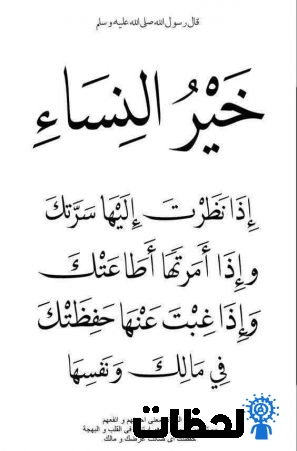 قال رسول الله صلى الله عليه وسلم
خَيْرُ النِسَاءِ
إِذَا نَظَرْتَ إِلَيْهَا سَرَّتكَ
وإِذَا أَمَرتَهَا أَطَاعَتْكَ
وَإِذَا غِبْتَ عَنْهَا حَفِظَتْكَ
فِي مَالِكَ وَنَفسِهَا
لحظات
في القلب و البهجة
عرضك و مالك.